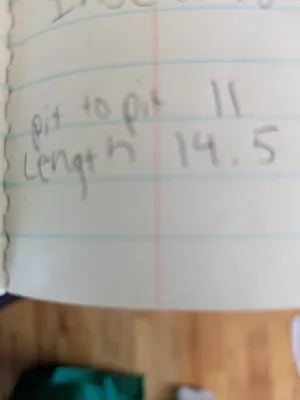 pit to pit 11
Length 14.5